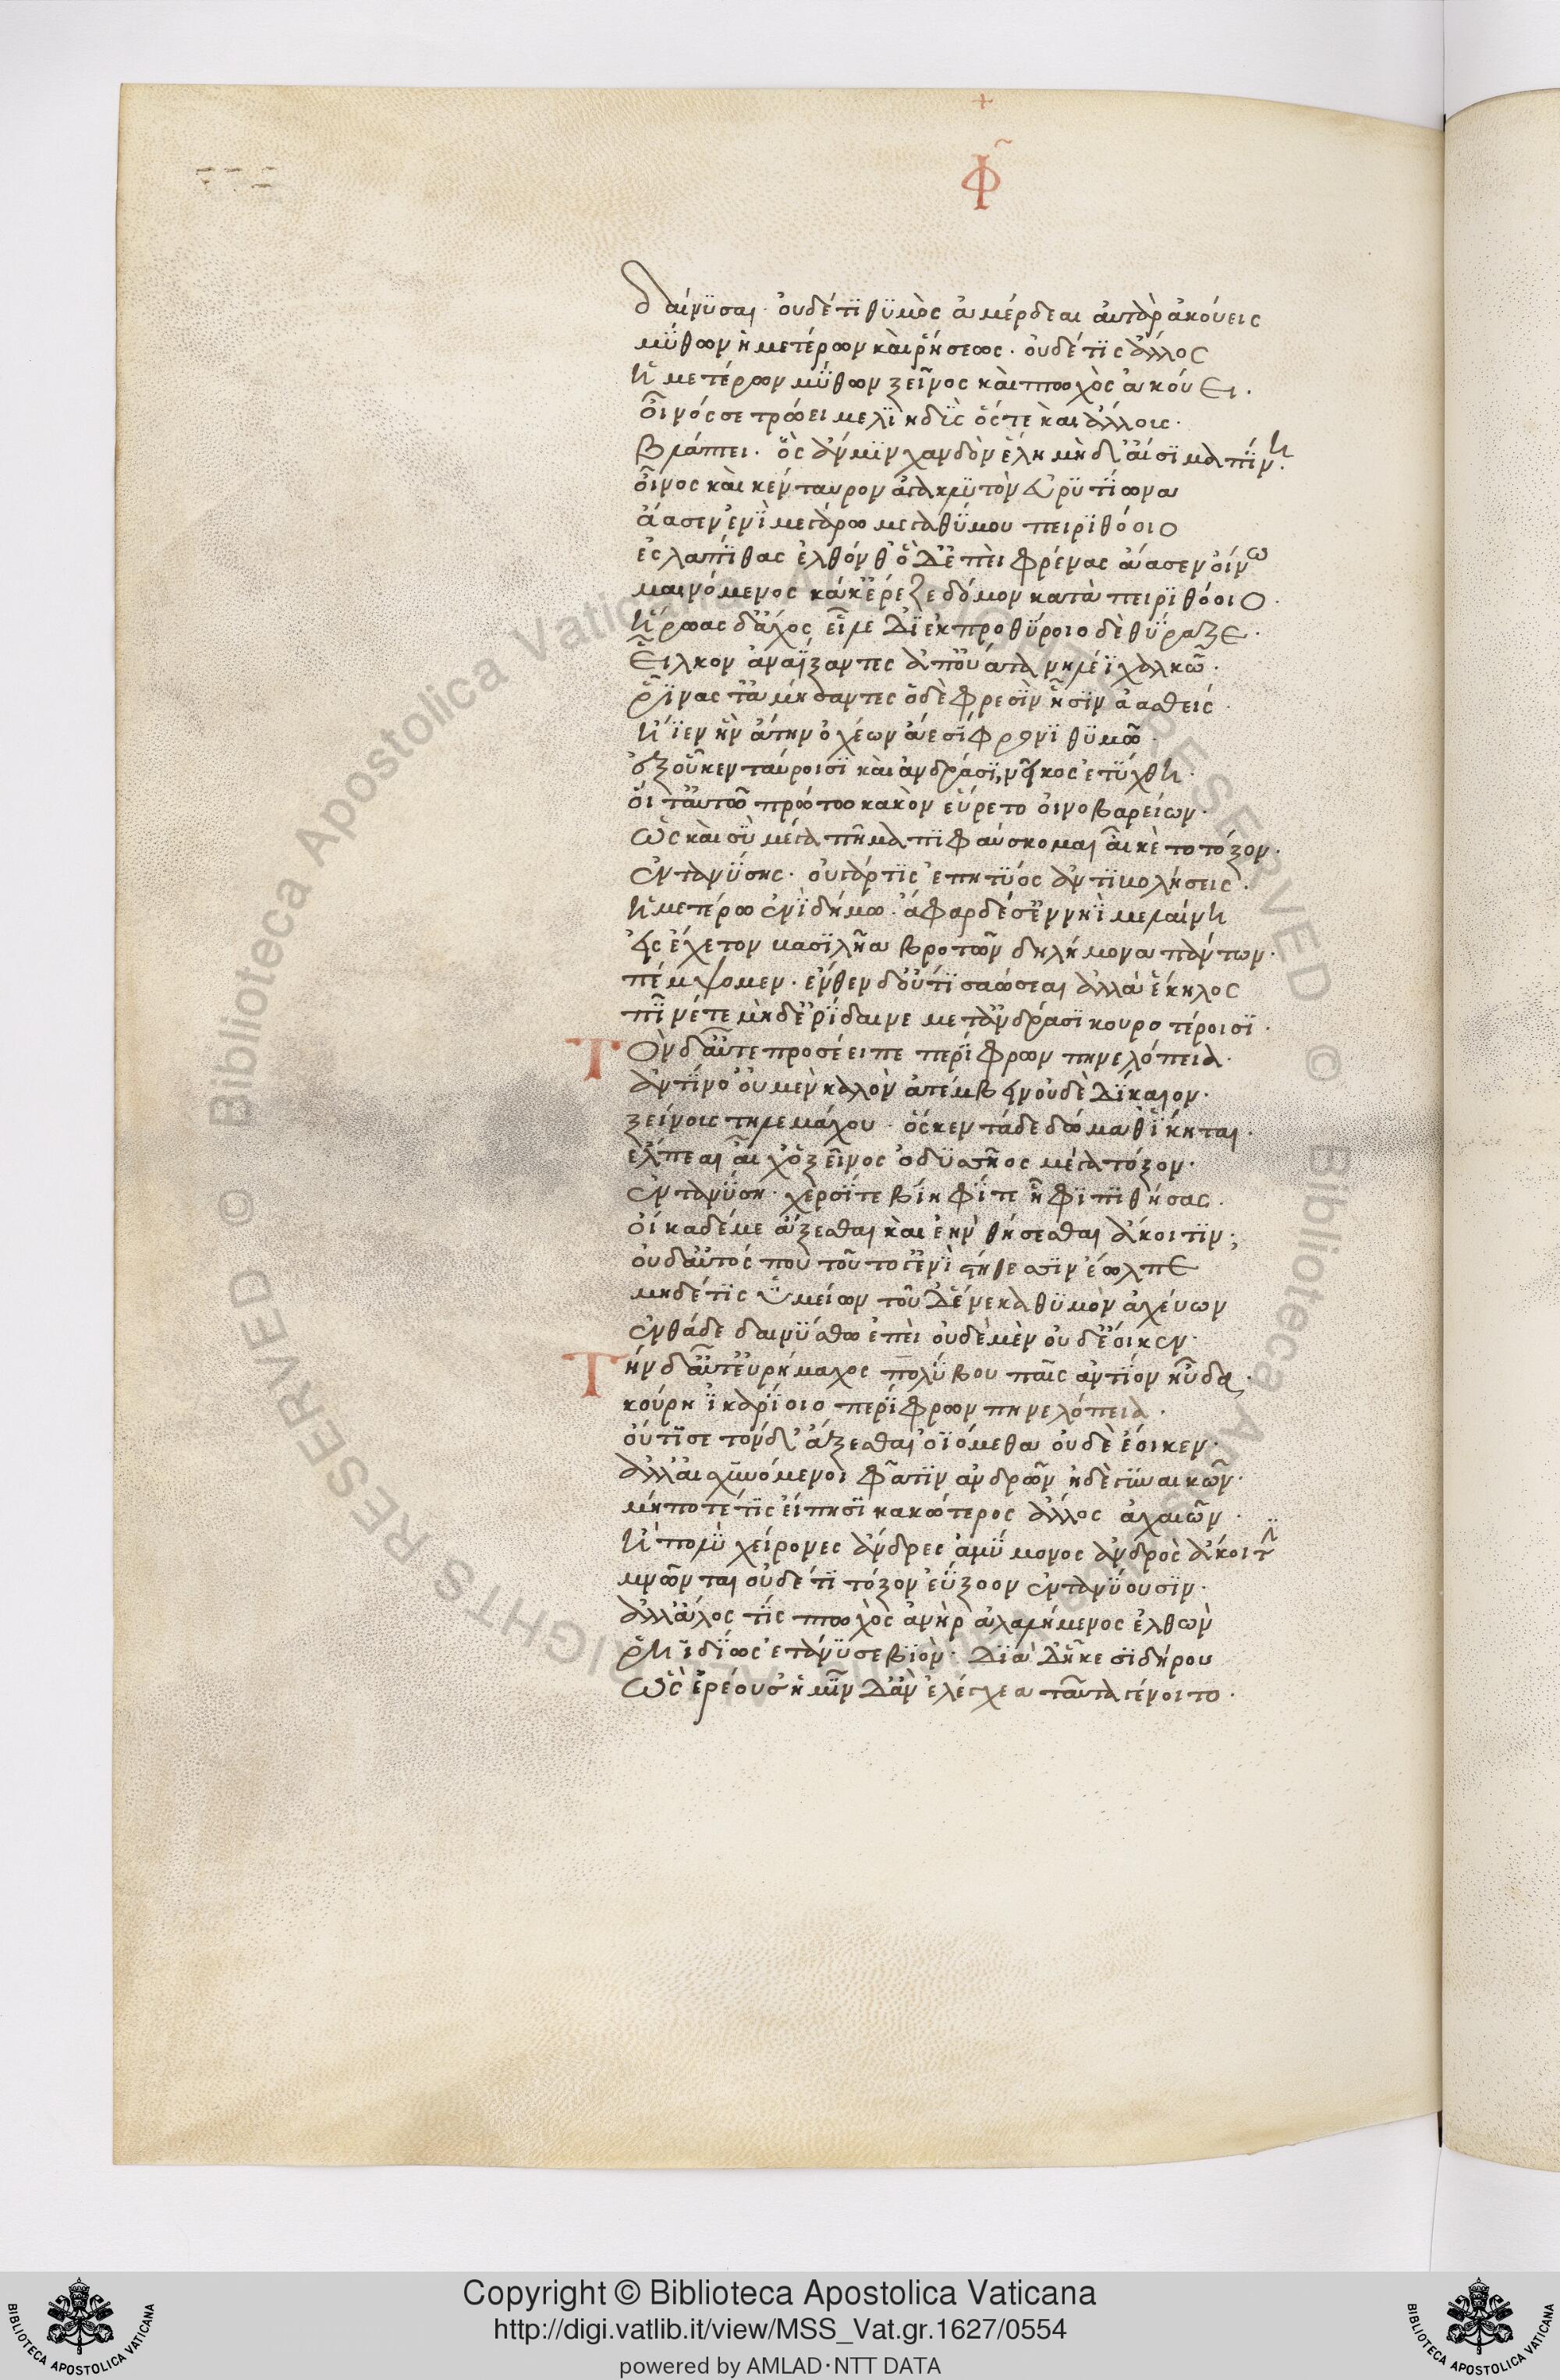 +
Φ
δαίνϋσαι· ὀυδέτϊ θϋμὸς ἀμέρδεαι ἀυτὰρ ἀκόυεις
μΰθων ἡμετέρων κὰι ῥήσεως· ὀυδέτϊς ἄλλος
ἡμετέρων μΰθων ξεῖνος κὰι πτωχὸς ἀκόυει·
ὀῖνός σε τρώει μελϊηδῒς ὅστε κὰι ἄλλους·
βλάπτει· ὃς ἄν μϊν χανδὸν ἕλη μὴδ' ἄισϊμα πΐνη·
ὀῖνος κὰι κένταυρον ἀγακλϋτὸν ἐυρϋτΐωνα
ἄασεν ἐνῒ μεγάρω μεγαθΰμου πειρϊθόοιο
ἐς λαπΐθας ἐλθόνθ' ὃ δ' ἐπὲι φρένας ἄασεν ὀίνω
μαινόμενος κάκ' ἔρεξε δόμον κατὰ πειρϊθόοιο·
ἥρωας δ' ἄχος εἷλε δϊ' ἐκ προθΰροιο δὲ θΰραζε·
εἷλκον ἀναΐξαντες ἀπ' ὄυατα νηλέϊ χαλκῶ·
ῥῖνας τ' ἀμήσαντες ὃ δὲ φρεσῒν ᾗσϊν ἀασθείς·
ἤϊεν ἣν ἄτην ὀχέων ἀεσΐφρονϊ θϋμῶ·
ἐξ οὗ κενταύροισϊ κὰι ἀνδράσϊ νεῖκος ἐτΰχθη·
ὁῖ τ' ἀυτῶ πρώτω κακὸν εὕρετο ὀινοβαρείων·
ὣς κὰι σοῒ μέγα πῆμα πϊφαύσκομαι ἄικε τὸ τόξον·
ἐντανΰσης· ὀυ γάρ τϊς ἐπητΰος ἀντϊβολήσεις·
ἡμετέρω ἐνῒ δήμω· ἄφαρ δέ σ' ἐν νηῒ μελαίνη
εἰς ἔχετον βασϊλῆα βροτῶν δηλήμονα πάντων·
πέμψομεν· ἔνθεν δ' ὄυτϊ σαώσεαι ἀλλὰ ἕκηλος
πῖνέ τε μὴδ' ἐρΐδαινε μετ' ἀνδράσϊ κουροτέροισϊ·
Τὸν δ' ἀῦτε προσέειπε περΐφρων πηνελόπεια·
ἀντΐνο' ὀυ μὲν καλὸν ἀτέμβειν ὀυδὲ δΐκαιον·
ξείνους τηλεμάχου· ὅς κεν τάδε δώμαθ' ΐκηται·
ἔλπεαι ἄι χ' ὁ ξεῖνος ὀδϋσσῆος μέγα τόξον·
ἐντανΰση· χερσΐ τε βίηφΐ τε ἧφϊ πϊθήσας·
ὀίκαδέ με ἄξεσθαι κὰι ἑὴν θήσεσθαι ἄκοιτϊν;
ὀυδ' ἀυτός που τοῦτο γ' ἐνῒ στήθεσσϊν ἔωλπε
μηδέ τϊς ὑμείων τοῦ δ' ἕνεκα θϋμὸν ἀχέυων
ἐνθάδε δαινΰσθω ἐπὲι ὀυδὲ μὲν ὀυδὲ ἔοικεν·
Τὴν δ' ἀῦτ' ἐυρήμαχος πολΰβου παῖς ἀντΐον ηὔδα·
κούρη ϊκαρΐοιο περΐφρων πηνελόπεια·
ὀύτΐ σε τόνδ' ἄξεσθαι ὀϊόμεθα ὀυδὲ ἔοικεν·
ἀλλ' ἀισχϋνόμενοι φάτϊν ἀνδρῶν ἠδὲ γϋναικῶν·
μήποτέ τϊς εἴπησϊ κακώτερος ἄλλος ἀχαιῶν·
ἦ πολῢ χείρονες ἄνδρες ἀμΰμονος ἀνδρὸς ἄκοιτϊν
μνῶνται ὀυδέ τϊ τόξον ἐΰξοον ἐντανΰουσϊν·
ἀλλ' ἄλλος τΐς πτωχὸς ἀνὴρ ἀλαλήμενος ἐλθὼν
ῥηϊδΐως ἐτάνϋσε βϊὸν· δϊὰ δ' ἧκε σϊδήρου
ὣς ἐρέουσ' ἡμῖν δ' ἂν ἐλέγχεα ταῦτα γένοιτο·
Copyright © Biblioteca Apostolica Vaticana
http://digi.vatlib.it/view/MSS_Vat.gr.1627/0554
powered by AMLAD·NTT DATA